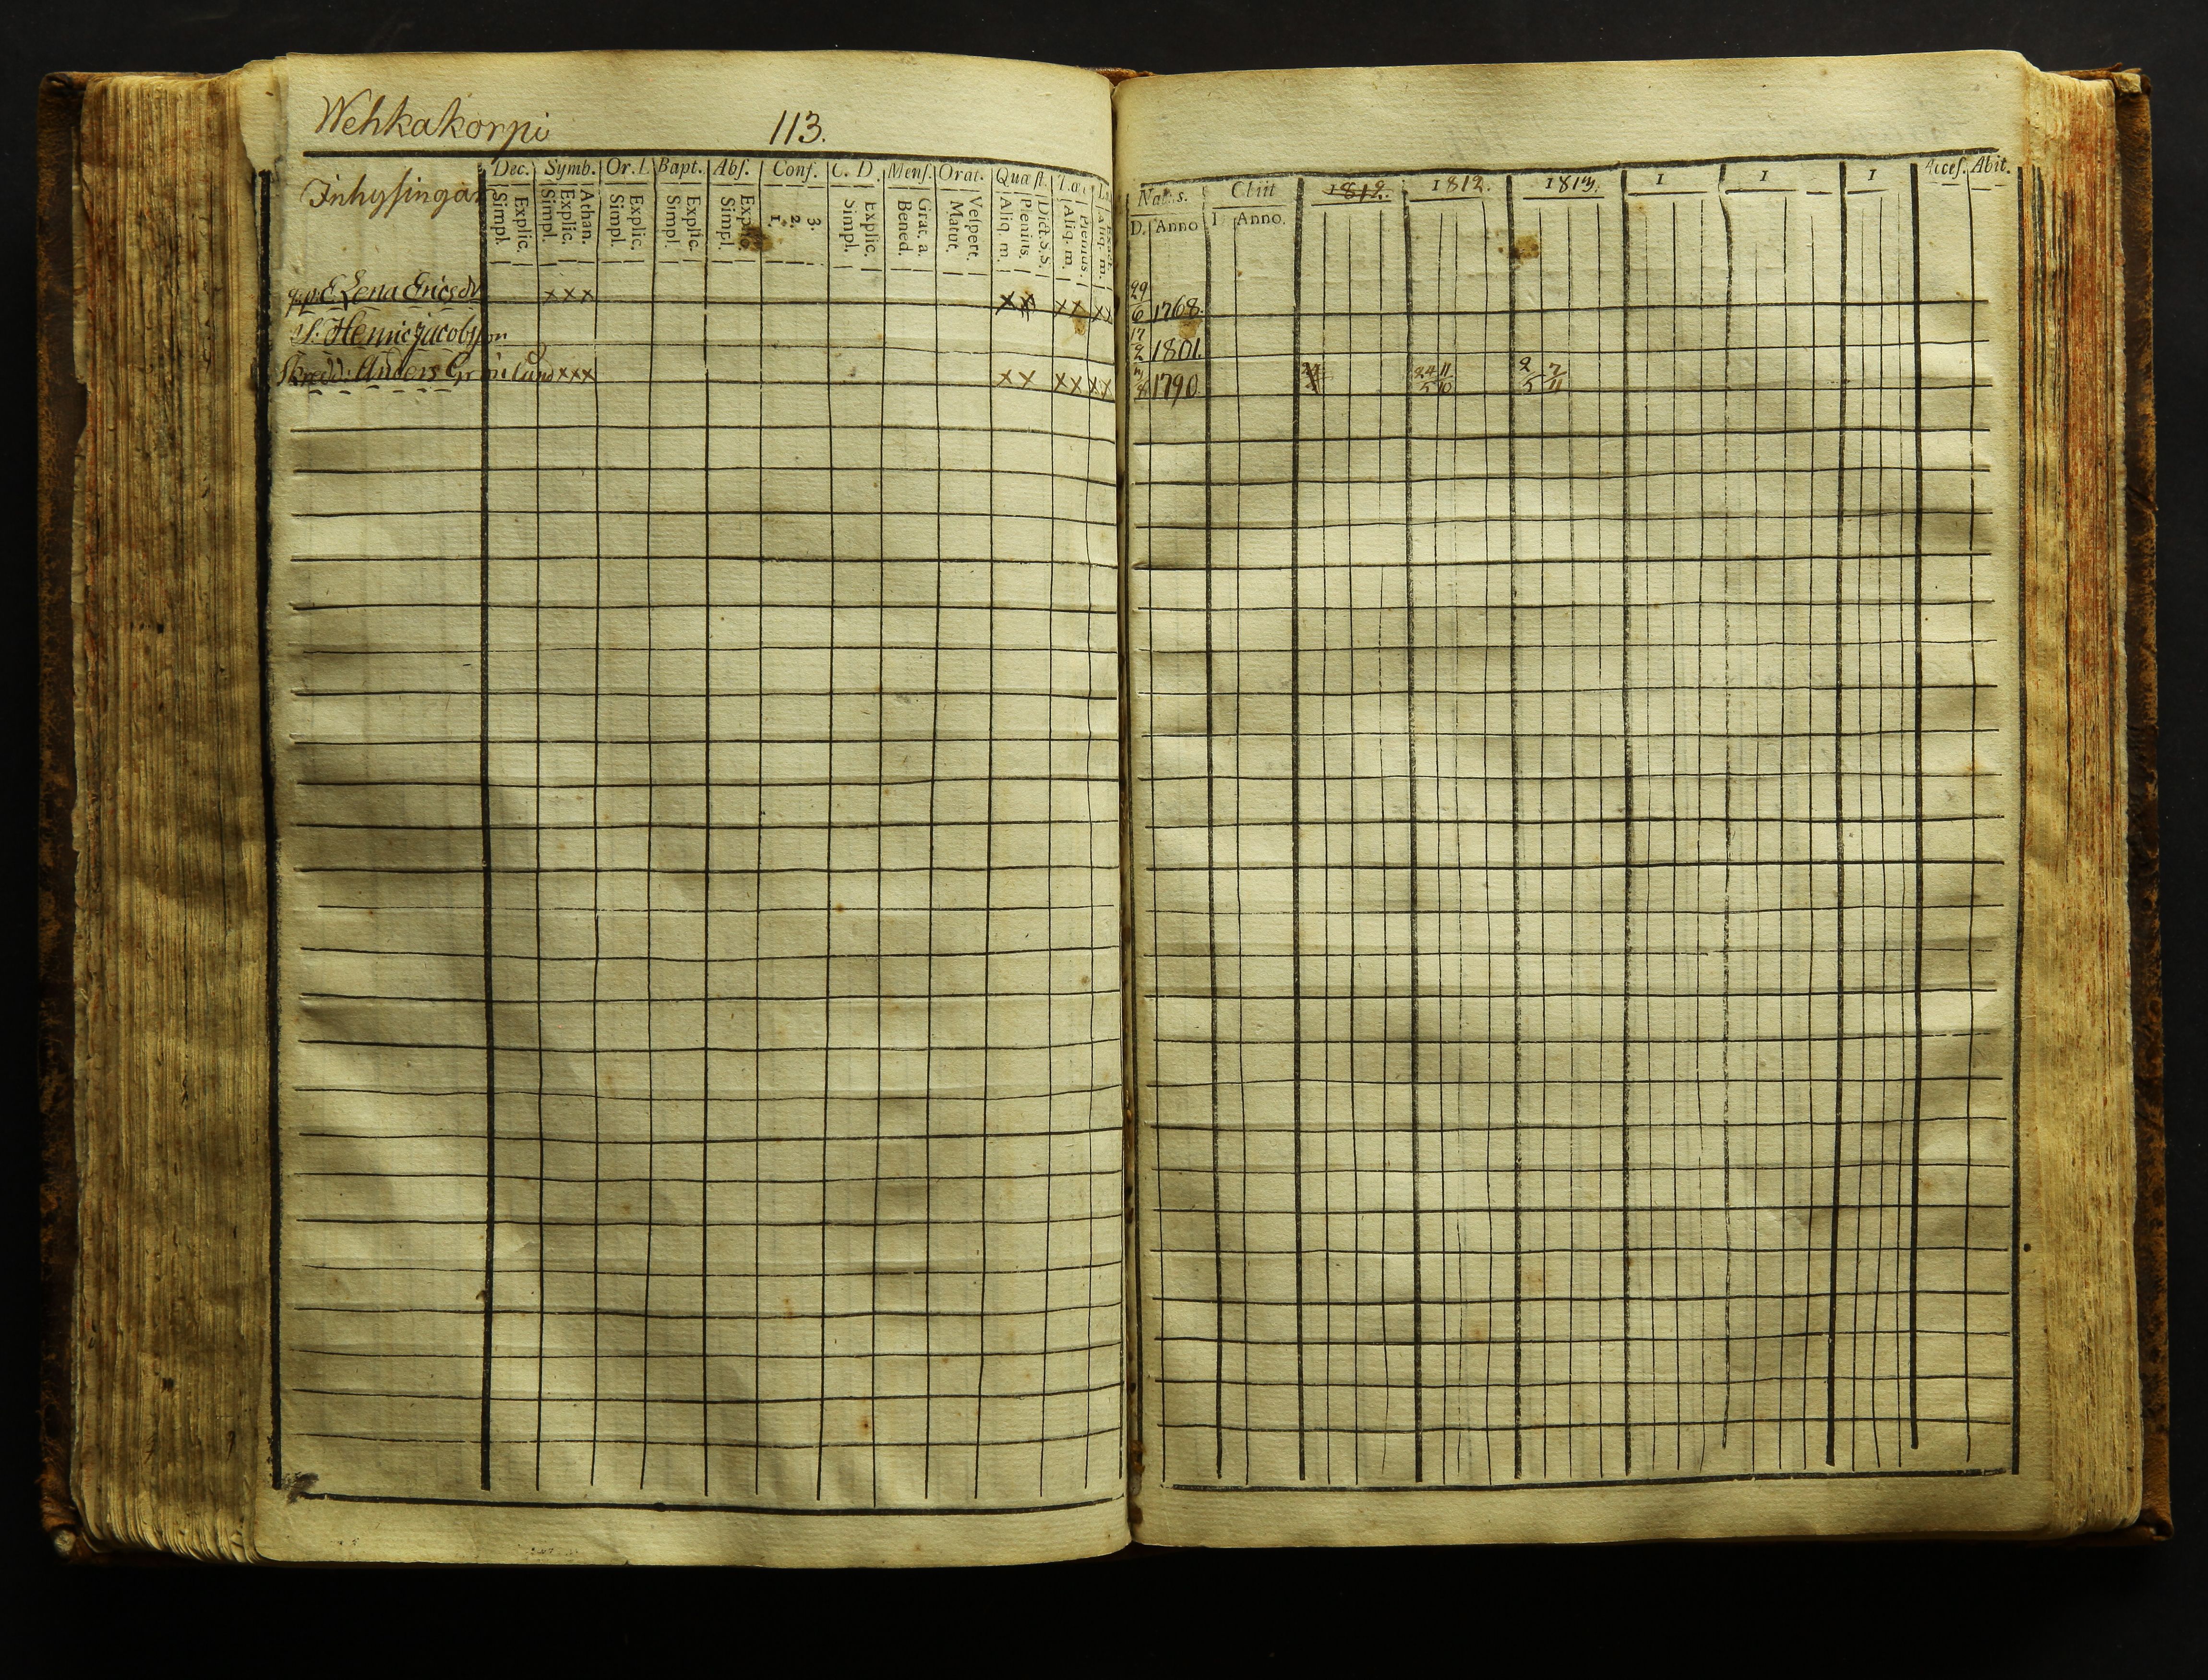 Wehkakorpi 113.
Inhysingar
Dec. Symb. Or. D. Bapt. Abs. Conf. C. D. Mens. Orat. Quæst.
Simpl. Explic. Simpl. Explic. Athan. Simpl. Explic. Simpl. Explic. Simpl. Explic. 1. 2. 3. Simpl. Explic. Bened. Grat. a. Matut. Vespert. Aliq. m. Plenius. Dict. S. S. Aliq. m. Plenius. Aliq. m.
E. Lena Ericsdr xxx xx xx xx
S. Henric Jacobsson
Skredd: Anders Grönlund xxx xx xx xx
Natus. Obiit 1812. 1812. 1813. 1 1 1 Acces. Abit.
D. Anno Anno.
29/6 1768.
17/2 1801.
1790 24/5 11/10 2/5 7/11